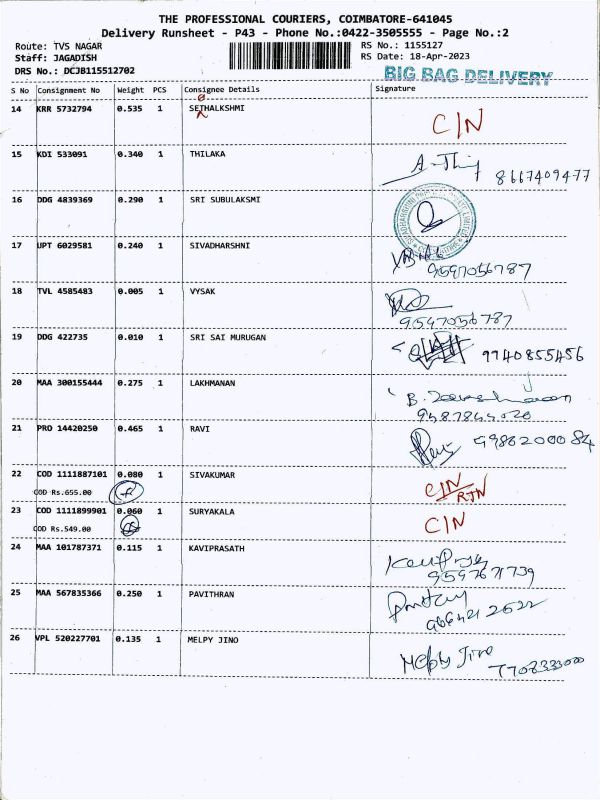 THE PROFESSIONAL COURIERS, COIMBATORE-641045
Delivery Runsheet - P43 - Phone No.:0422-3505555 - Page No.:2
Route: TVS NAGAR RS No.: 1155127
Staff: JAGADISH RS Date: 18-Apr-2023
DRS No.: DCJB115512702 BIG BAG DELIVERY
S No Consignment No Weight PCS Consignee Details Signature
14 KRR 5732794 0.535 1 SETHALKSHMI C/N
15 KDI 533091 0.340 1 THILAKA 8667409477
16 DDG 4839369 0.290 1 SRI SUBULAKSMI
17 UPT 6029581 0.240 1 SIVADHARSHNI 9597056787
18 TVL 4585483 0.005 1 VYSAK 9547056787
19 DDG 422735 0.010 1 SRI SAI MURUGAN 9940855456
20 MAA 300155444 0.275 1 LAKHMANAN
21 PRO 14420250 0.465 1 RAVI
22 COD 1111887101 0.080 1 SIVAKUMAR C/N
COD Rs.655.00 RTN
23 COD 1111899901 0.060 1 SURYAKALA C/N
COD Rs.549.00
24 MAA 101787371 0.115 1 KAVIPRASATH
9597671739
25 MAA 567835366 0.250 1 PAVITHRAN
26 VPL 520227701 0.135 1 MELPY JINO Melpy Jino